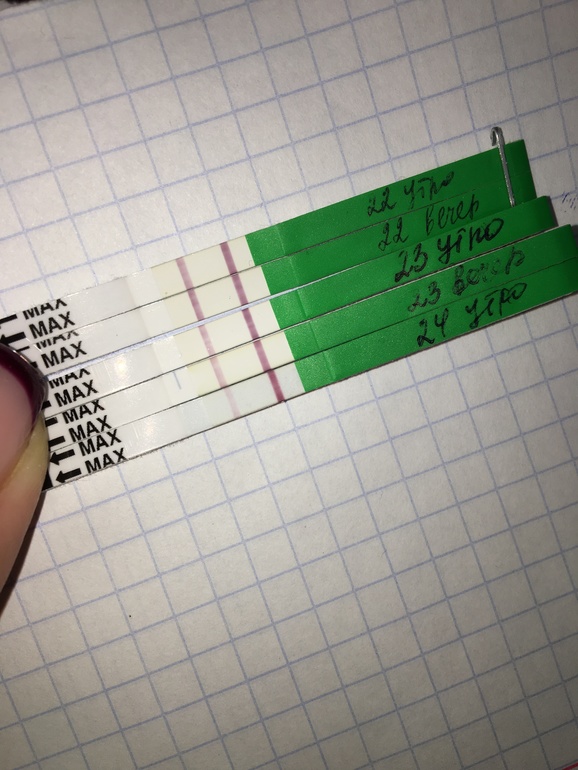 22 утро
22 вечер
23 утро
23 вечер
24 утро
MAX
MAX
MAX
MAX
MAX
MAX
MAX
MAX